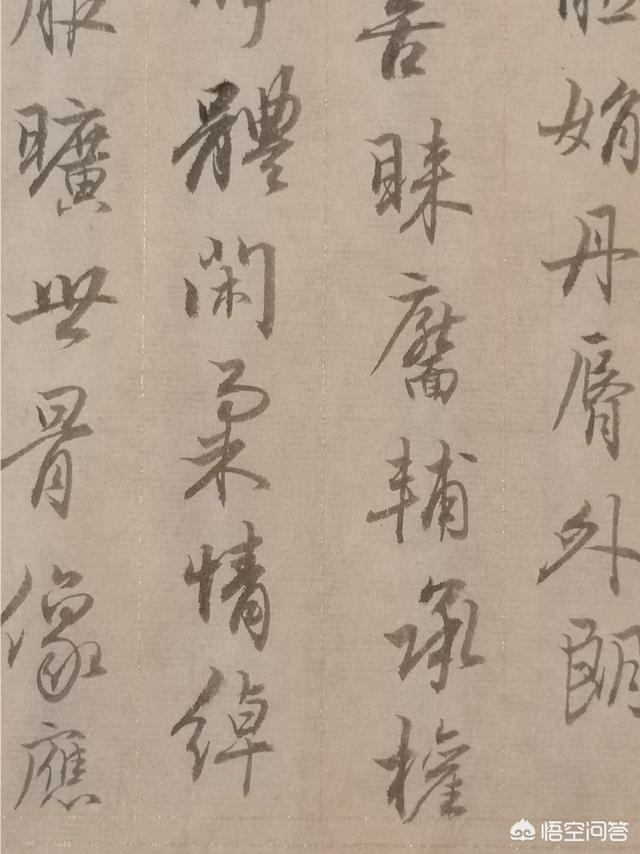 娟丹脣外朗
善睞靨輔承權
體閑柔情綽
服曠世骨像應
悟空问答